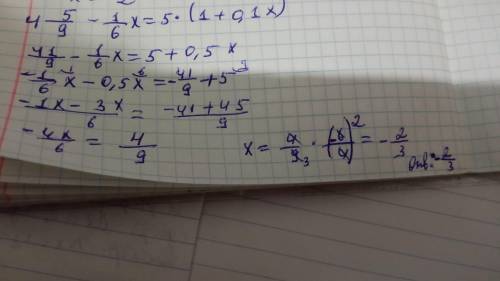 4 5/9 - 1/6 x = 5 · (1 + 0,1x)
41/9 - 1/6 x = 5 + 0,5 x
- 1/6 x - 0,5 x = - 41/9 + 5
(-1x - 3x)/6 = (-41 + 45)/9
- 4x/6 = 4/9
x = 4/9 3 · (6/4) 2 = - 2/3
Отв: - 2/3